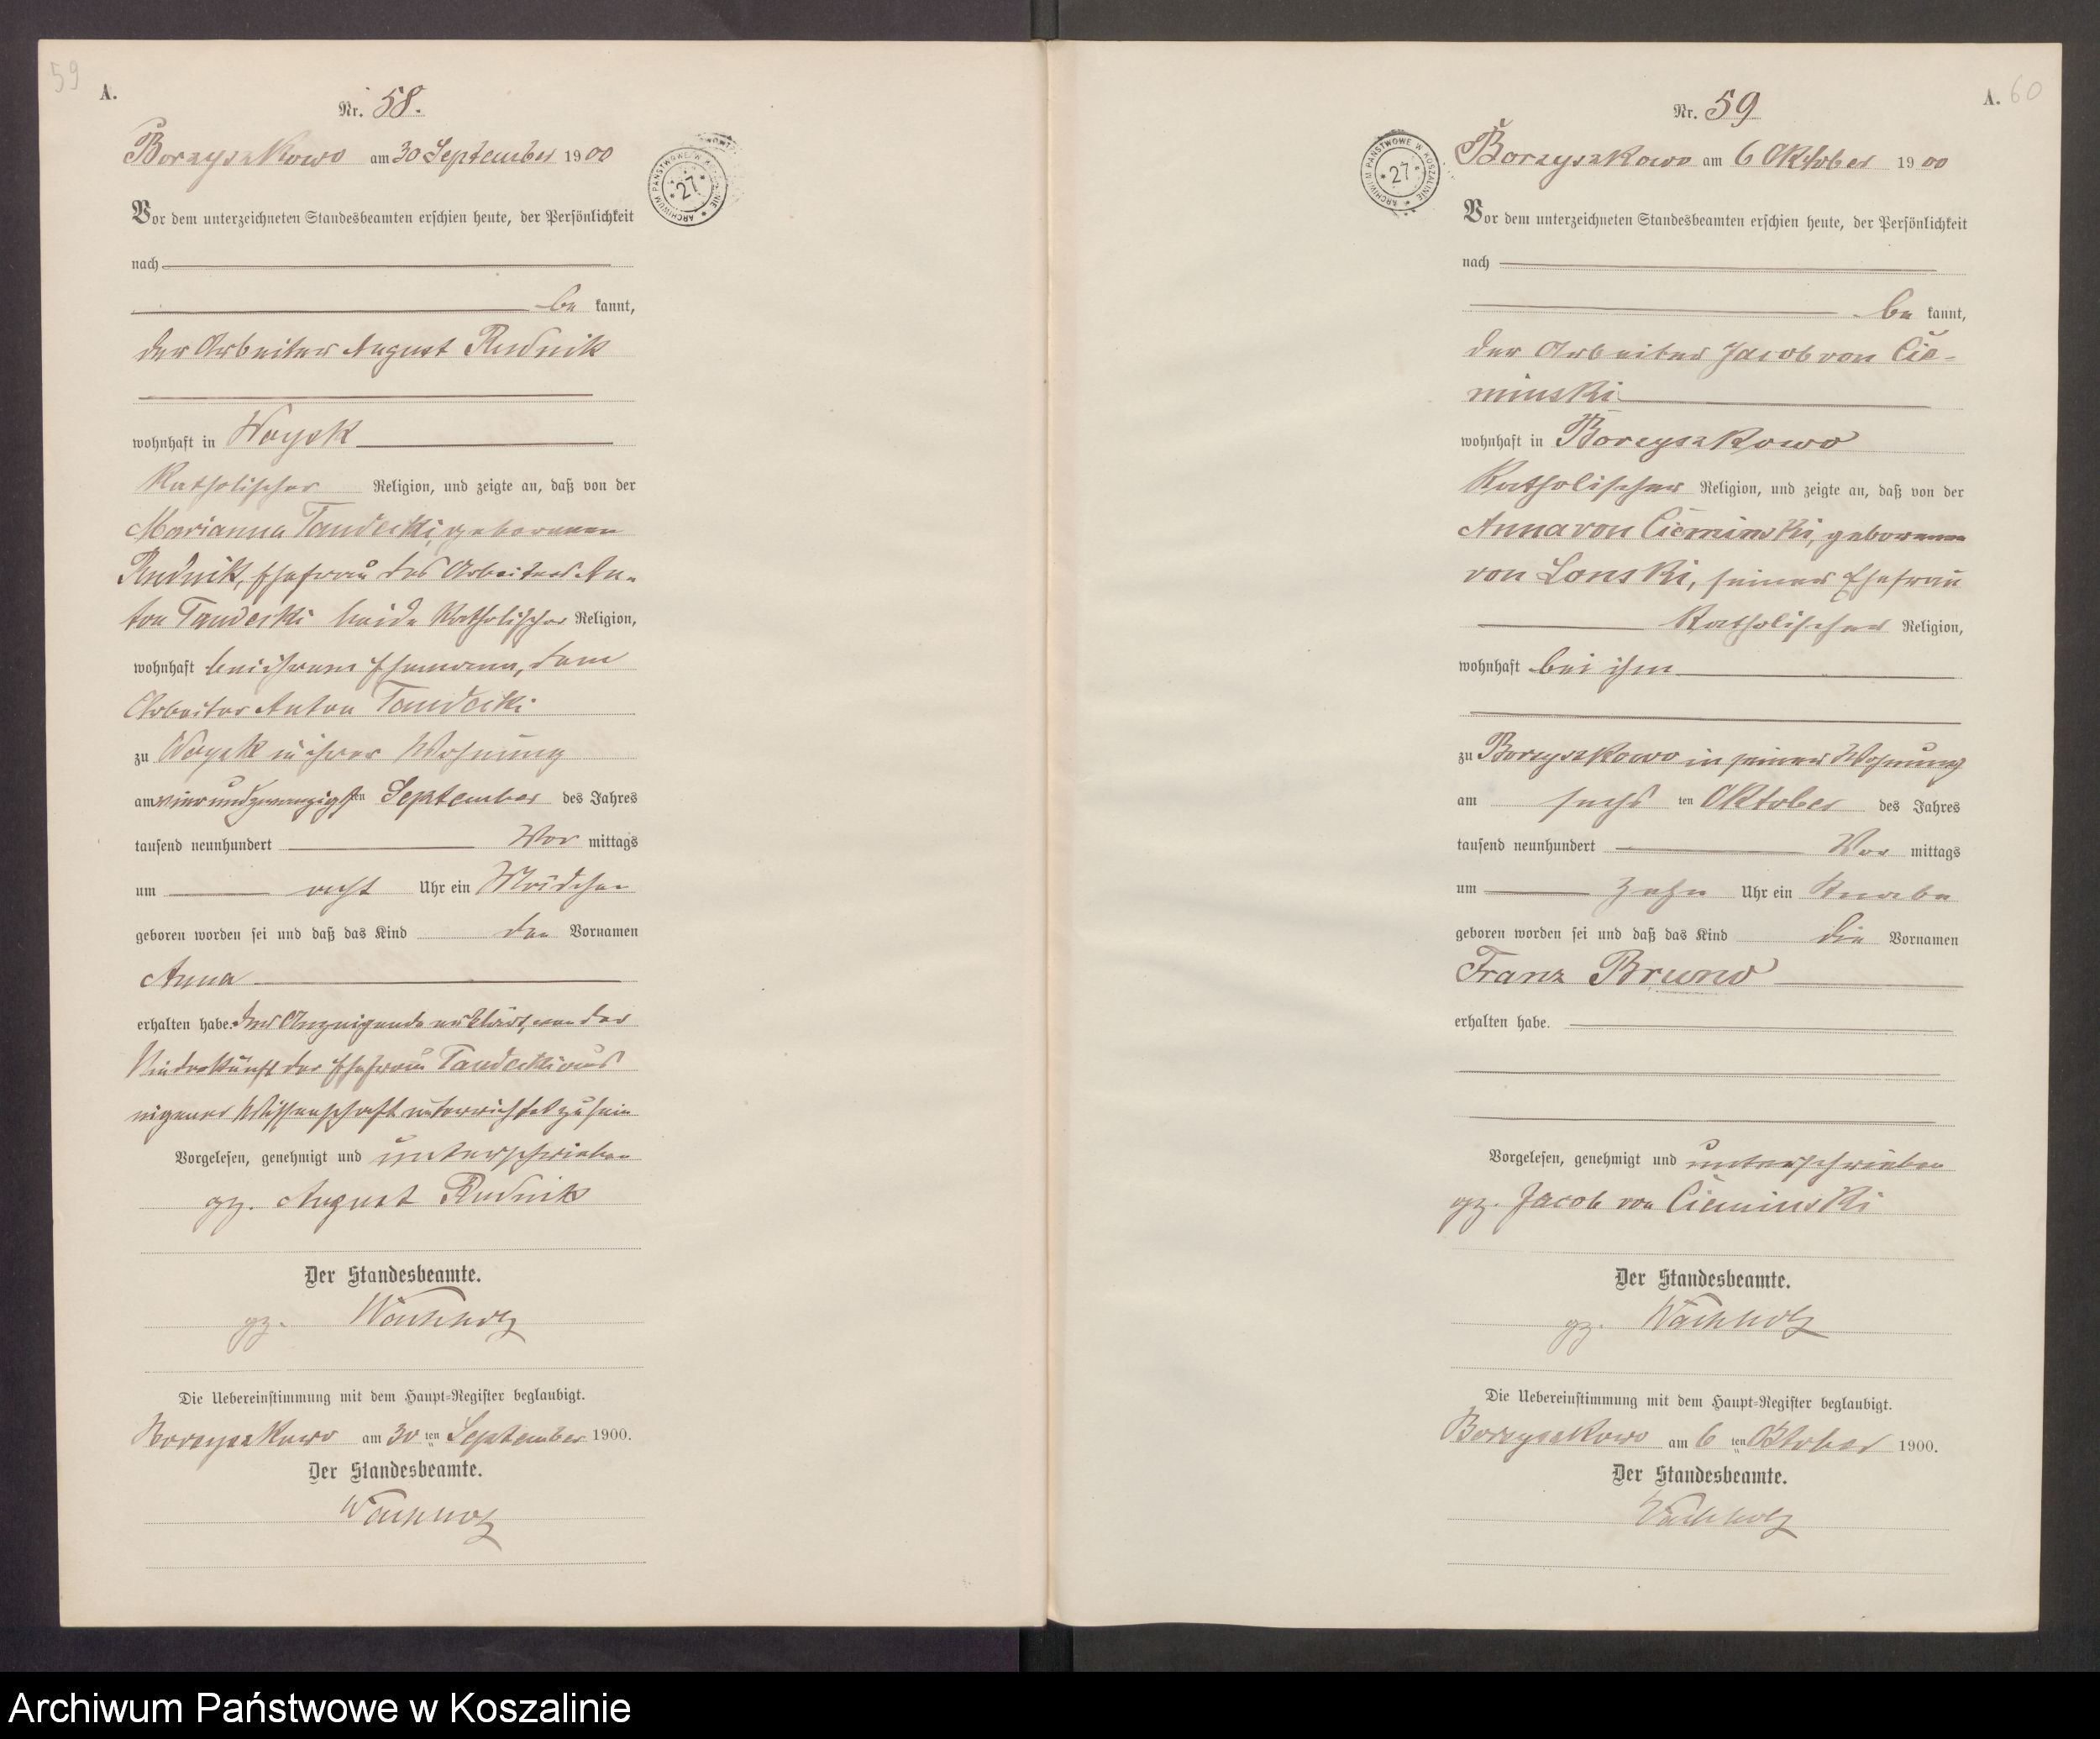 59
A.
Nr. 58.
Borzyszkowo am 30 September 1900
Vor dem unterzeichneten Standesbeamten erschien heute, der Persönlichkeit
nach
be kannt,
der Arbeiter August Rudnik
wohnhaft in Woysk
Katholischer Religion, und zeigte an, daß von der
Marianna Tandecki, geborenen
Rudnik, Ehefrau des Arbeiters An-
ton Tandecki beide Katholischer Religion,
wohnhaft bei ihrem Ehemann, dem
Arbeiter Anton Tandecki
zu Woysk in ihrer Wohnung
am vierundzwanzigsten September des Jahres
tausend neunhundert Vor mittags
um acht Uhr ein Mädchen
geboren worden sei und daß das Kind den Vornamen
Anna
erhalten habe. Der Anzeigende erklärt, von der
Niederkunft der Ehefrau Tandecki aus
eigener Wissenschaft unterrichtet zu sein
Vorgelesen, genehmigt und unterschrieben
gz. August Rudnik
Der Standesbeamte.
gz. Wachholz
Die Uebereinstimmung mit dem Haupt-Register beglaubigt.
Borzyszkowo am 30 ten September 1900.
Der Standesbeamte.
Wachholz
ARCHIWUM PAŃSTWOWE W KOSZALINIE
27
A. 60
Nr. 59
Borzyszkowo am 6 Oktober 1900
Vor dem unterzeichneten Standesbeamten erschien heute, der Persönlichkeit
nach
be kannt,
der Arbeiter Jacob von Cie-
minski
wohnhaft in Borzyszkowo
Katholischer Religion, und zeigte an, daß von der
Anna von Cieminski, geborenen
von Lonski, seiner Ehefrau
Katholischer Religion,
wohnhaft bei ihm
zu Borzyszkowo in seiner Wohnung
am sechs ten Oktober des Jahres
tausend neunhundert Vor mittags
um zehn Uhr ein Knabe
geboren worden sei und daß das Kind die Vornamen
Franz Bruno
erhalten habe.
Vorgelesen, genehmigt und unterschrieben
gz. Jacob von Cieminski
Der Standesbeamte.
gz. Wachholz
Die Uebereinstimmung mit dem Haupt-Register beglaubigt.
Borzyszkowo am 6 ten Oktober 1900.
Der Standesbeamte.
Wachholz
ARCHIWUM PAŃSTWOWE W KOSZALINIE
27
Archiwum Państwowe w Koszalinie